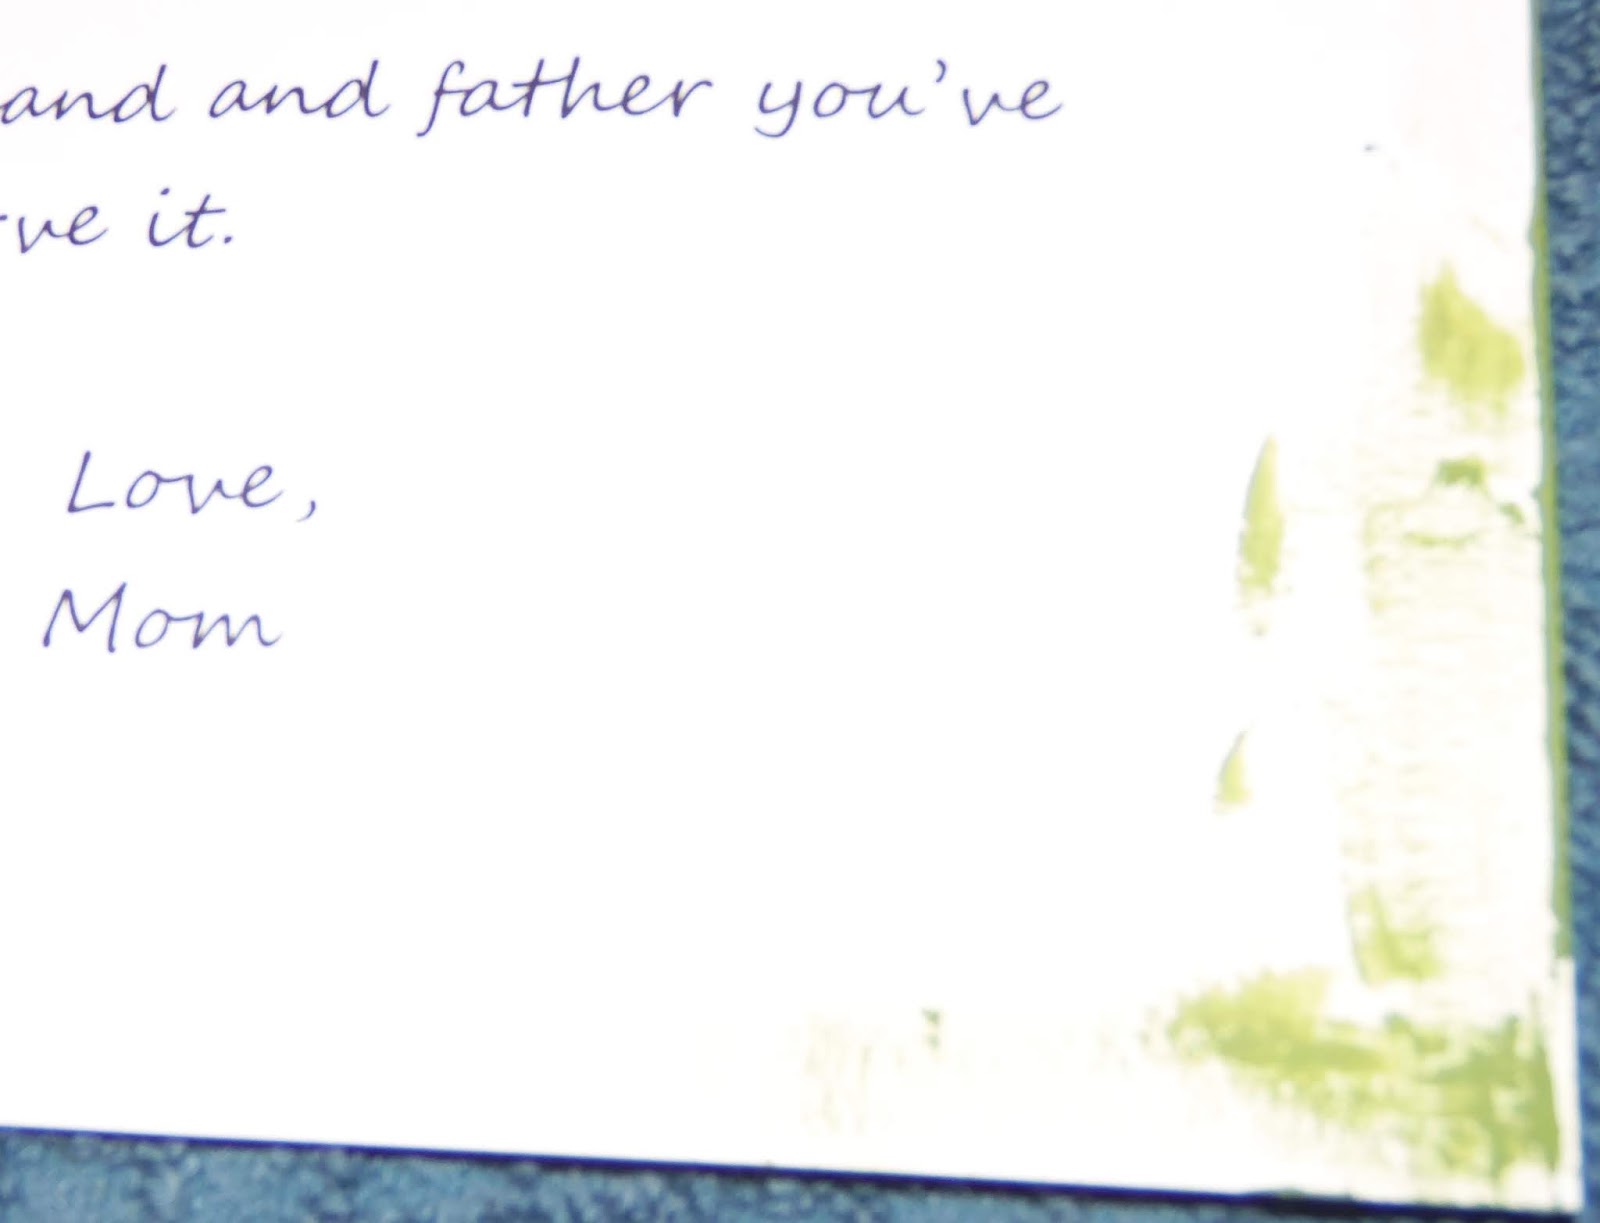 and and father you've
ve it.
Love,
Mom